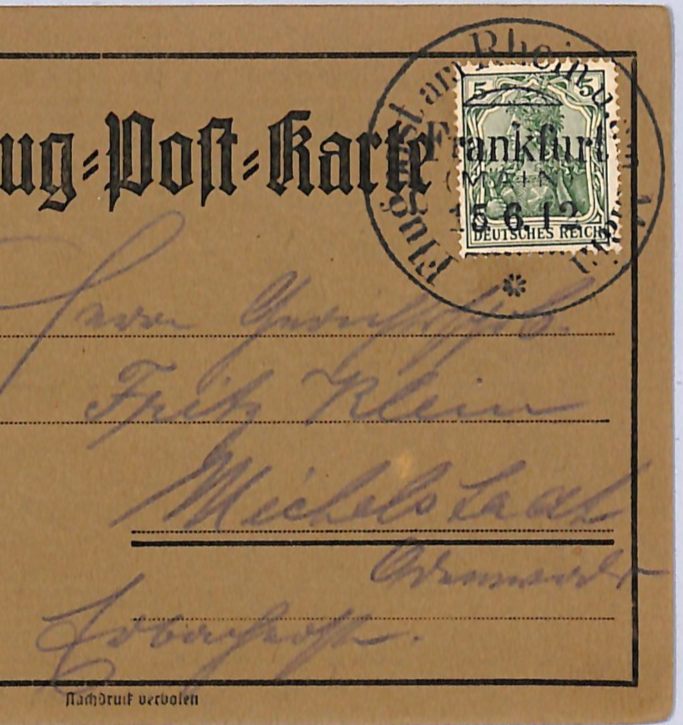 Flugpost am Rhein u. am Main
5 5
ug-Post-Karte
Frankfurt
(MAIN)
15.6.12
DEUTSCHES REICH
Herrn
Fritz Klein
Michelstadt
Odenwald
Nachdruck verboten